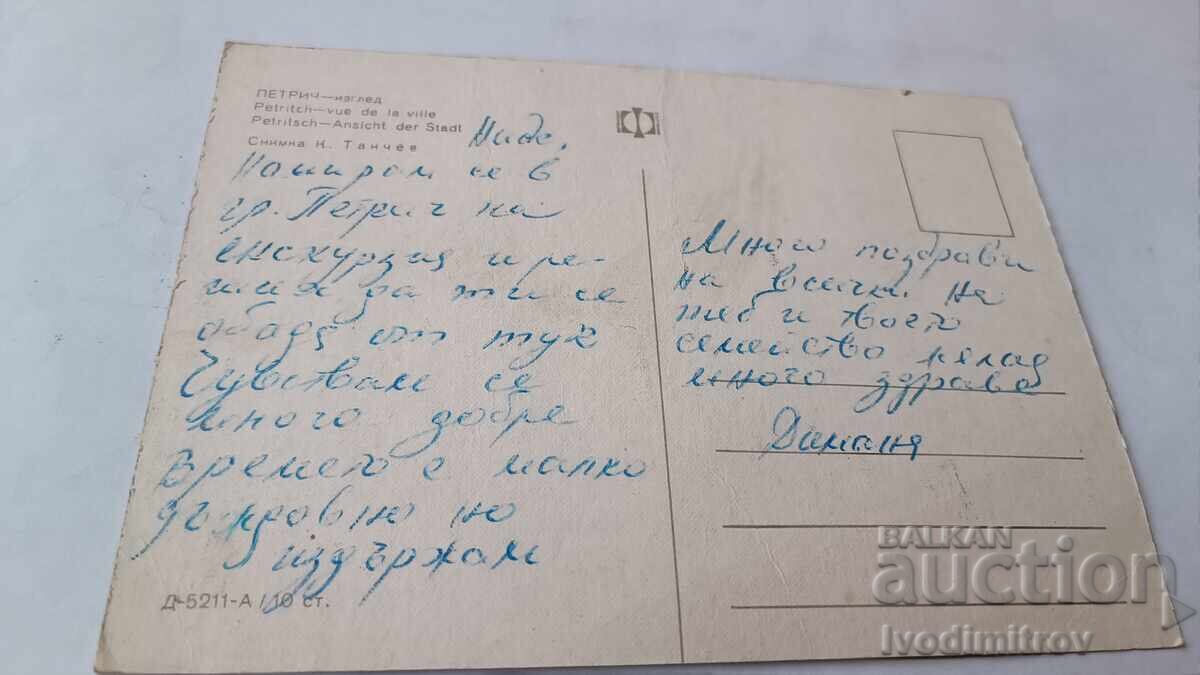 ПЕТРИЧ—изглед
Petritch—vue de la ville
Petritsch—Ansicht der Stadt
Снимка К. Танчев
Намирам се в
гр. Петрич на
екскурзия и ре-
ших да ти се
обадя от тук
Чувствам се
много добре
времето е малко
дъждовно но
издържам
Д-5211-А / 10 ст.
Много поздрави
на всички. На
теб и твоето
семейство желая
много здраве
Дамяня
BALKAN
auction
Ivodimitrov